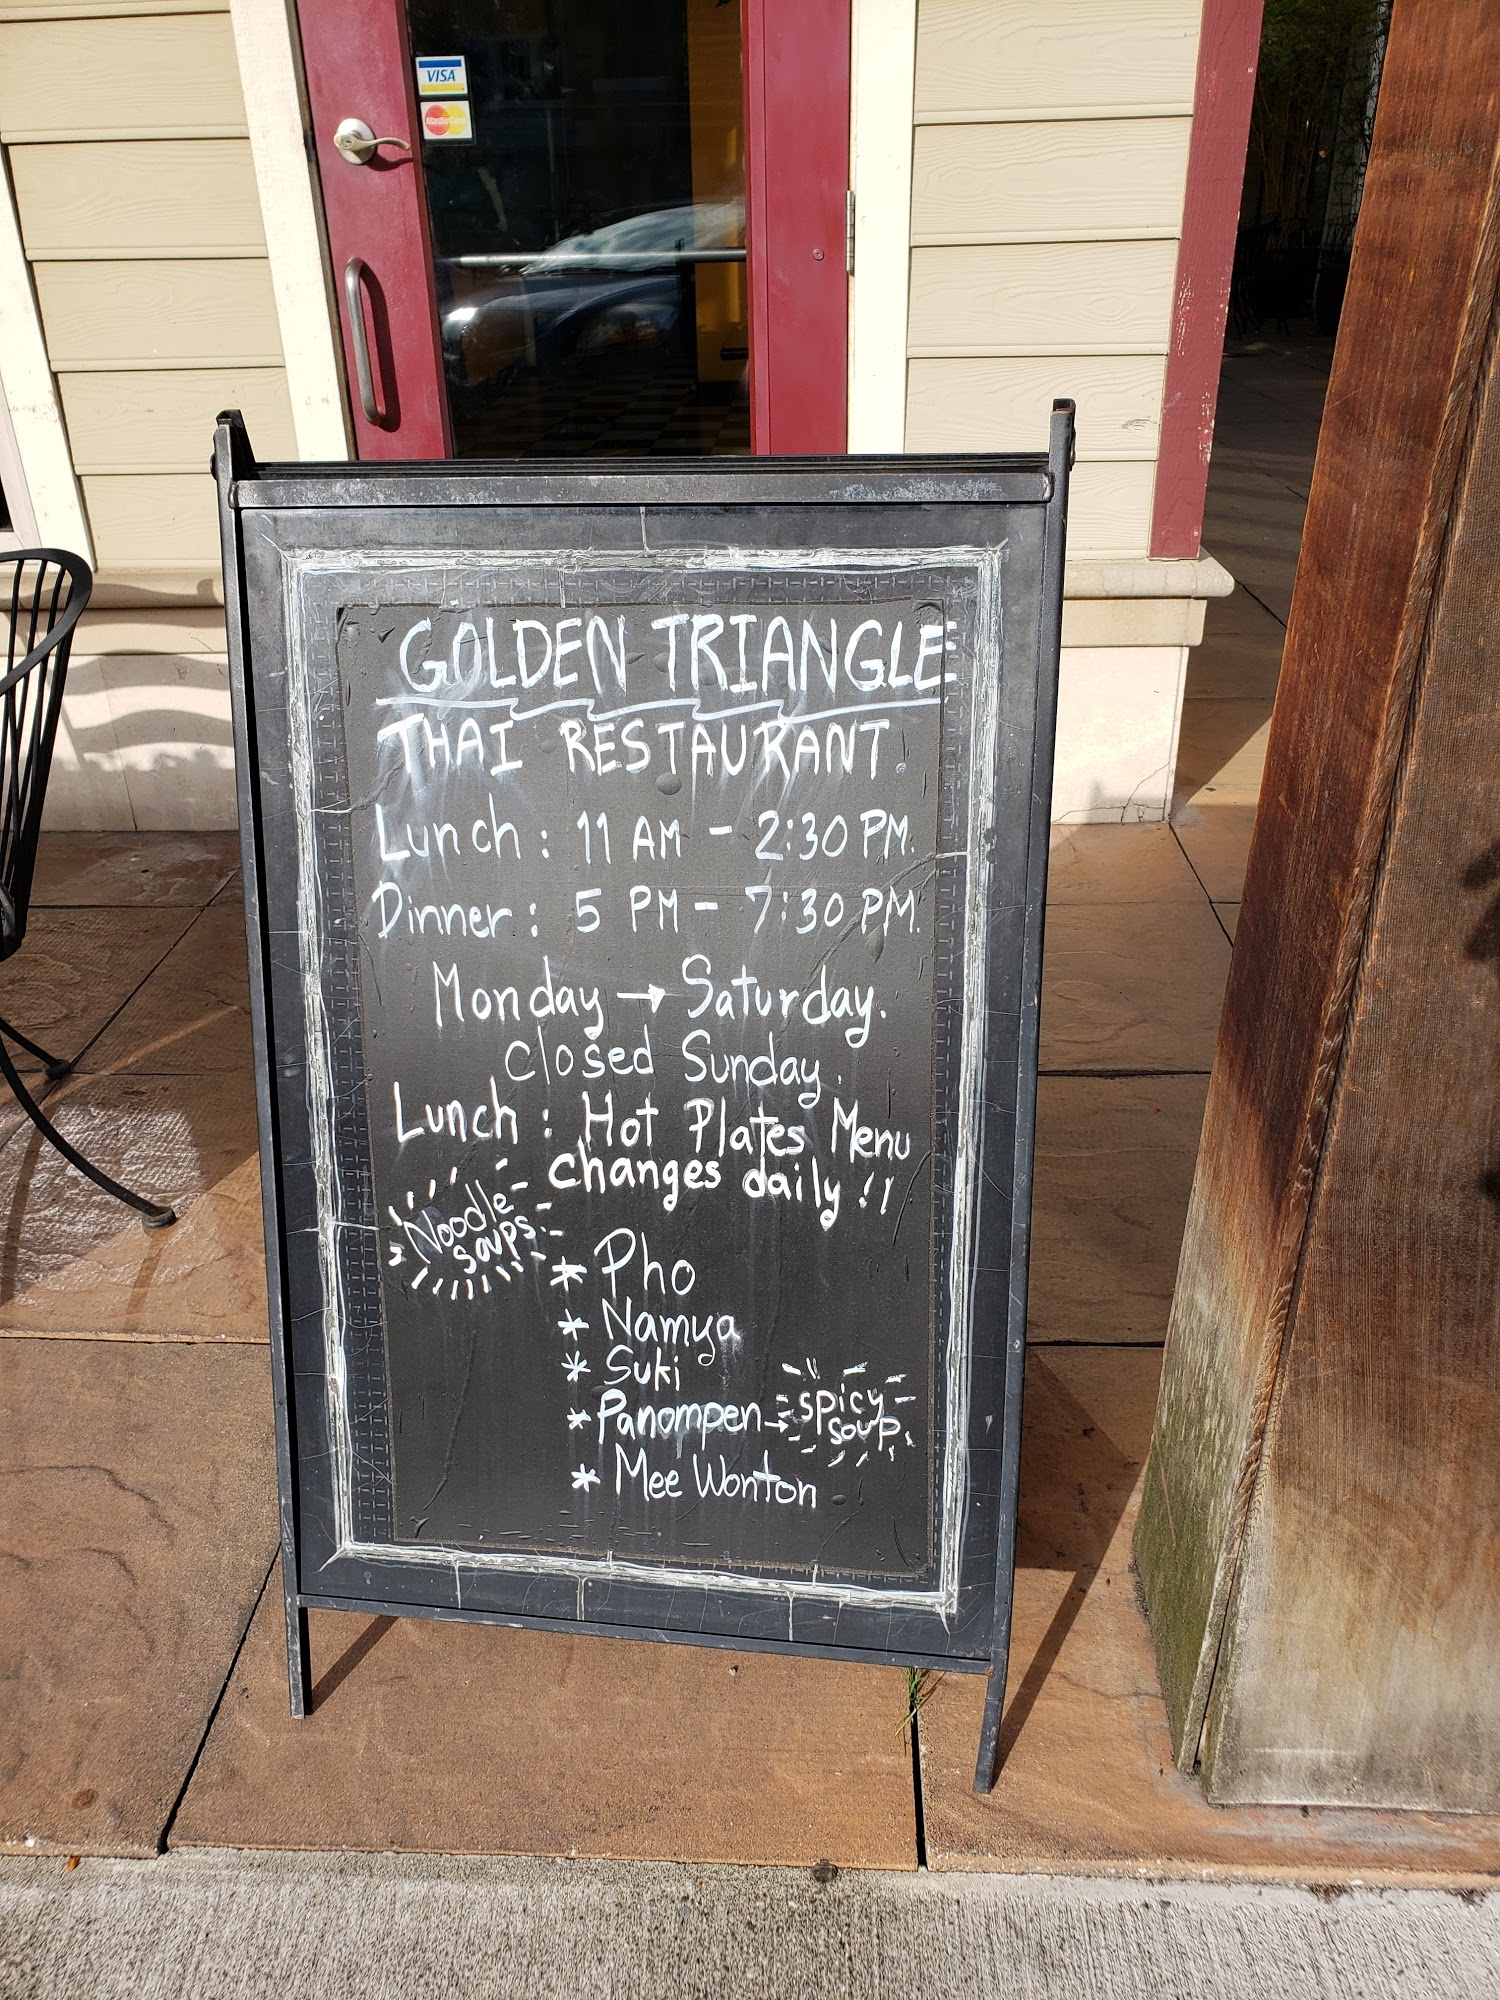 VISA
MasterCard
GOLDEN TRIANGLE
THAI RESTAURANT.
Lunch : 11 AM - 2:30 PM.
Dinner : 5 PM - 7:30 PM.
Monday → Saturday.
Closed Sunday.
Lunch : Hot Plates Menu
changes daily !!
Noodle
soups.
* Pho
* Namya
* Suki
* Panompen → spicy
soup.
* Mee Wonton